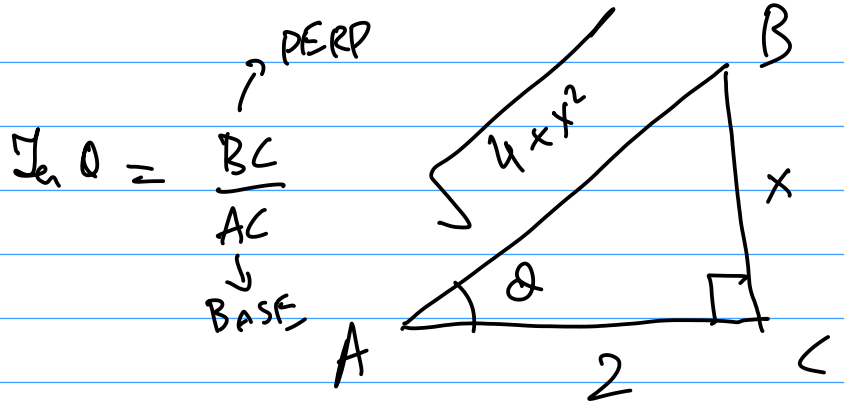 PERP
Tan θ = BC / AC
BASE
√4 + x²
B
x
θ
A
2
C